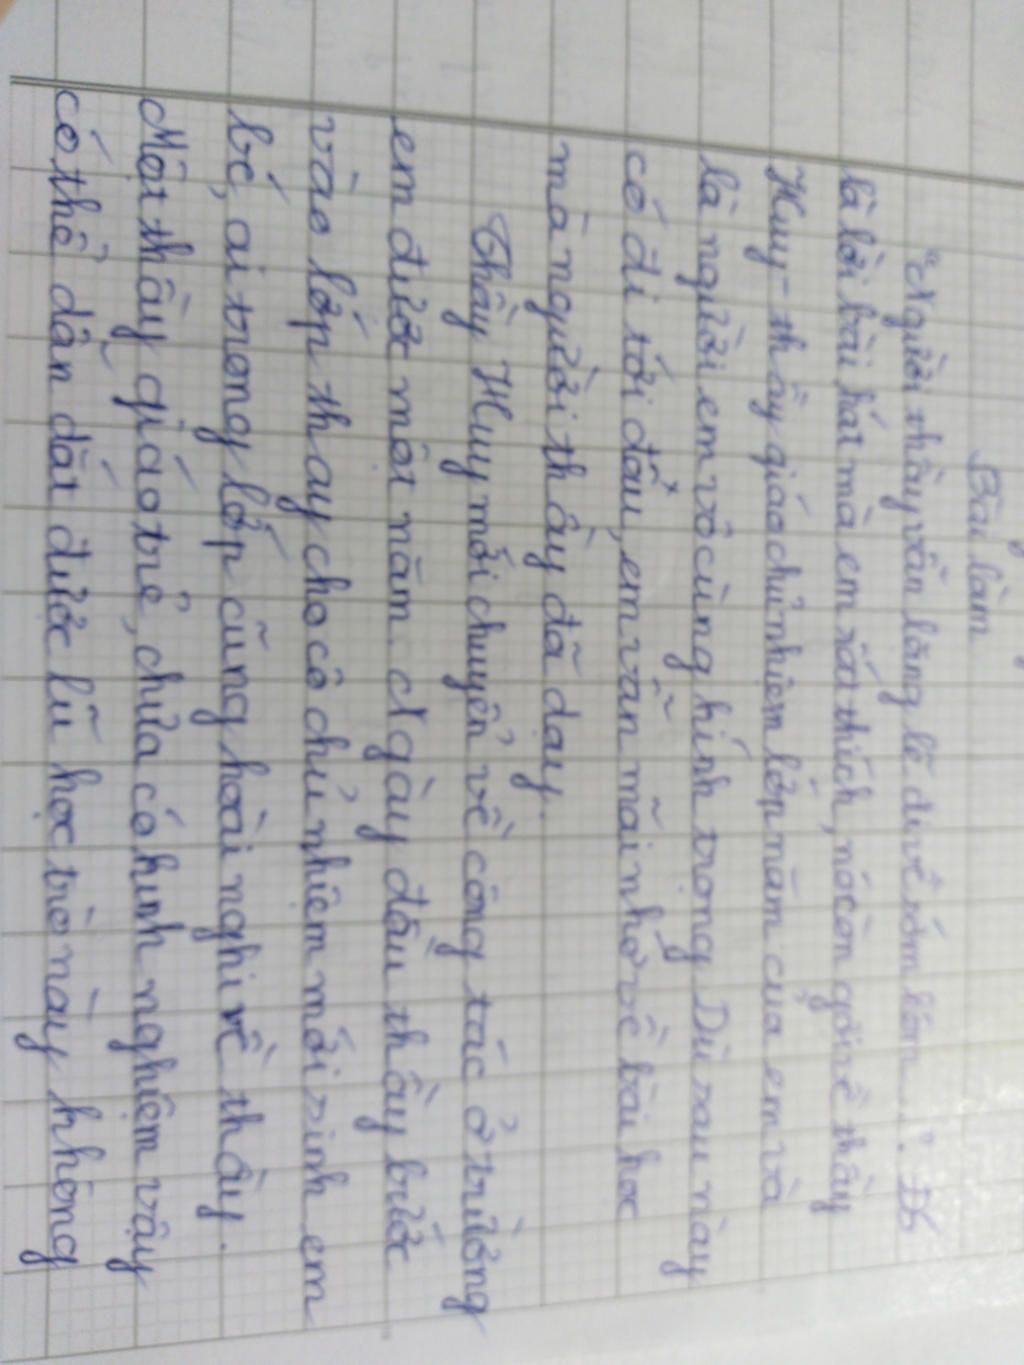 Bài làm
"Người thầy vẫn lặng lẽ đi về sớm hôm...". Đó
là lời bài hát mà em rất thích, nó còn gợi về thầy
Huy - thầy giáo chủ nhiệm lớp năm của em và
là người em vô cùng kính trọng. Dù sau này
có đi tới đâu, em vẫn mãi nhớ về bài học
mà người thầy đã dạy.
Thầy Huy mới chuyển về công tác ở trường
em được một năm. Ngày đầu thầy bước
vào lớp thay cho cô chủ nhiệm mới sinh em
bé, ai trong lớp cũng hoài nghi về thầy.
Một thầy giáo trẻ, chưa có kinh nghiệm vậy
có thể dẫn dắt được lũ học trò này không